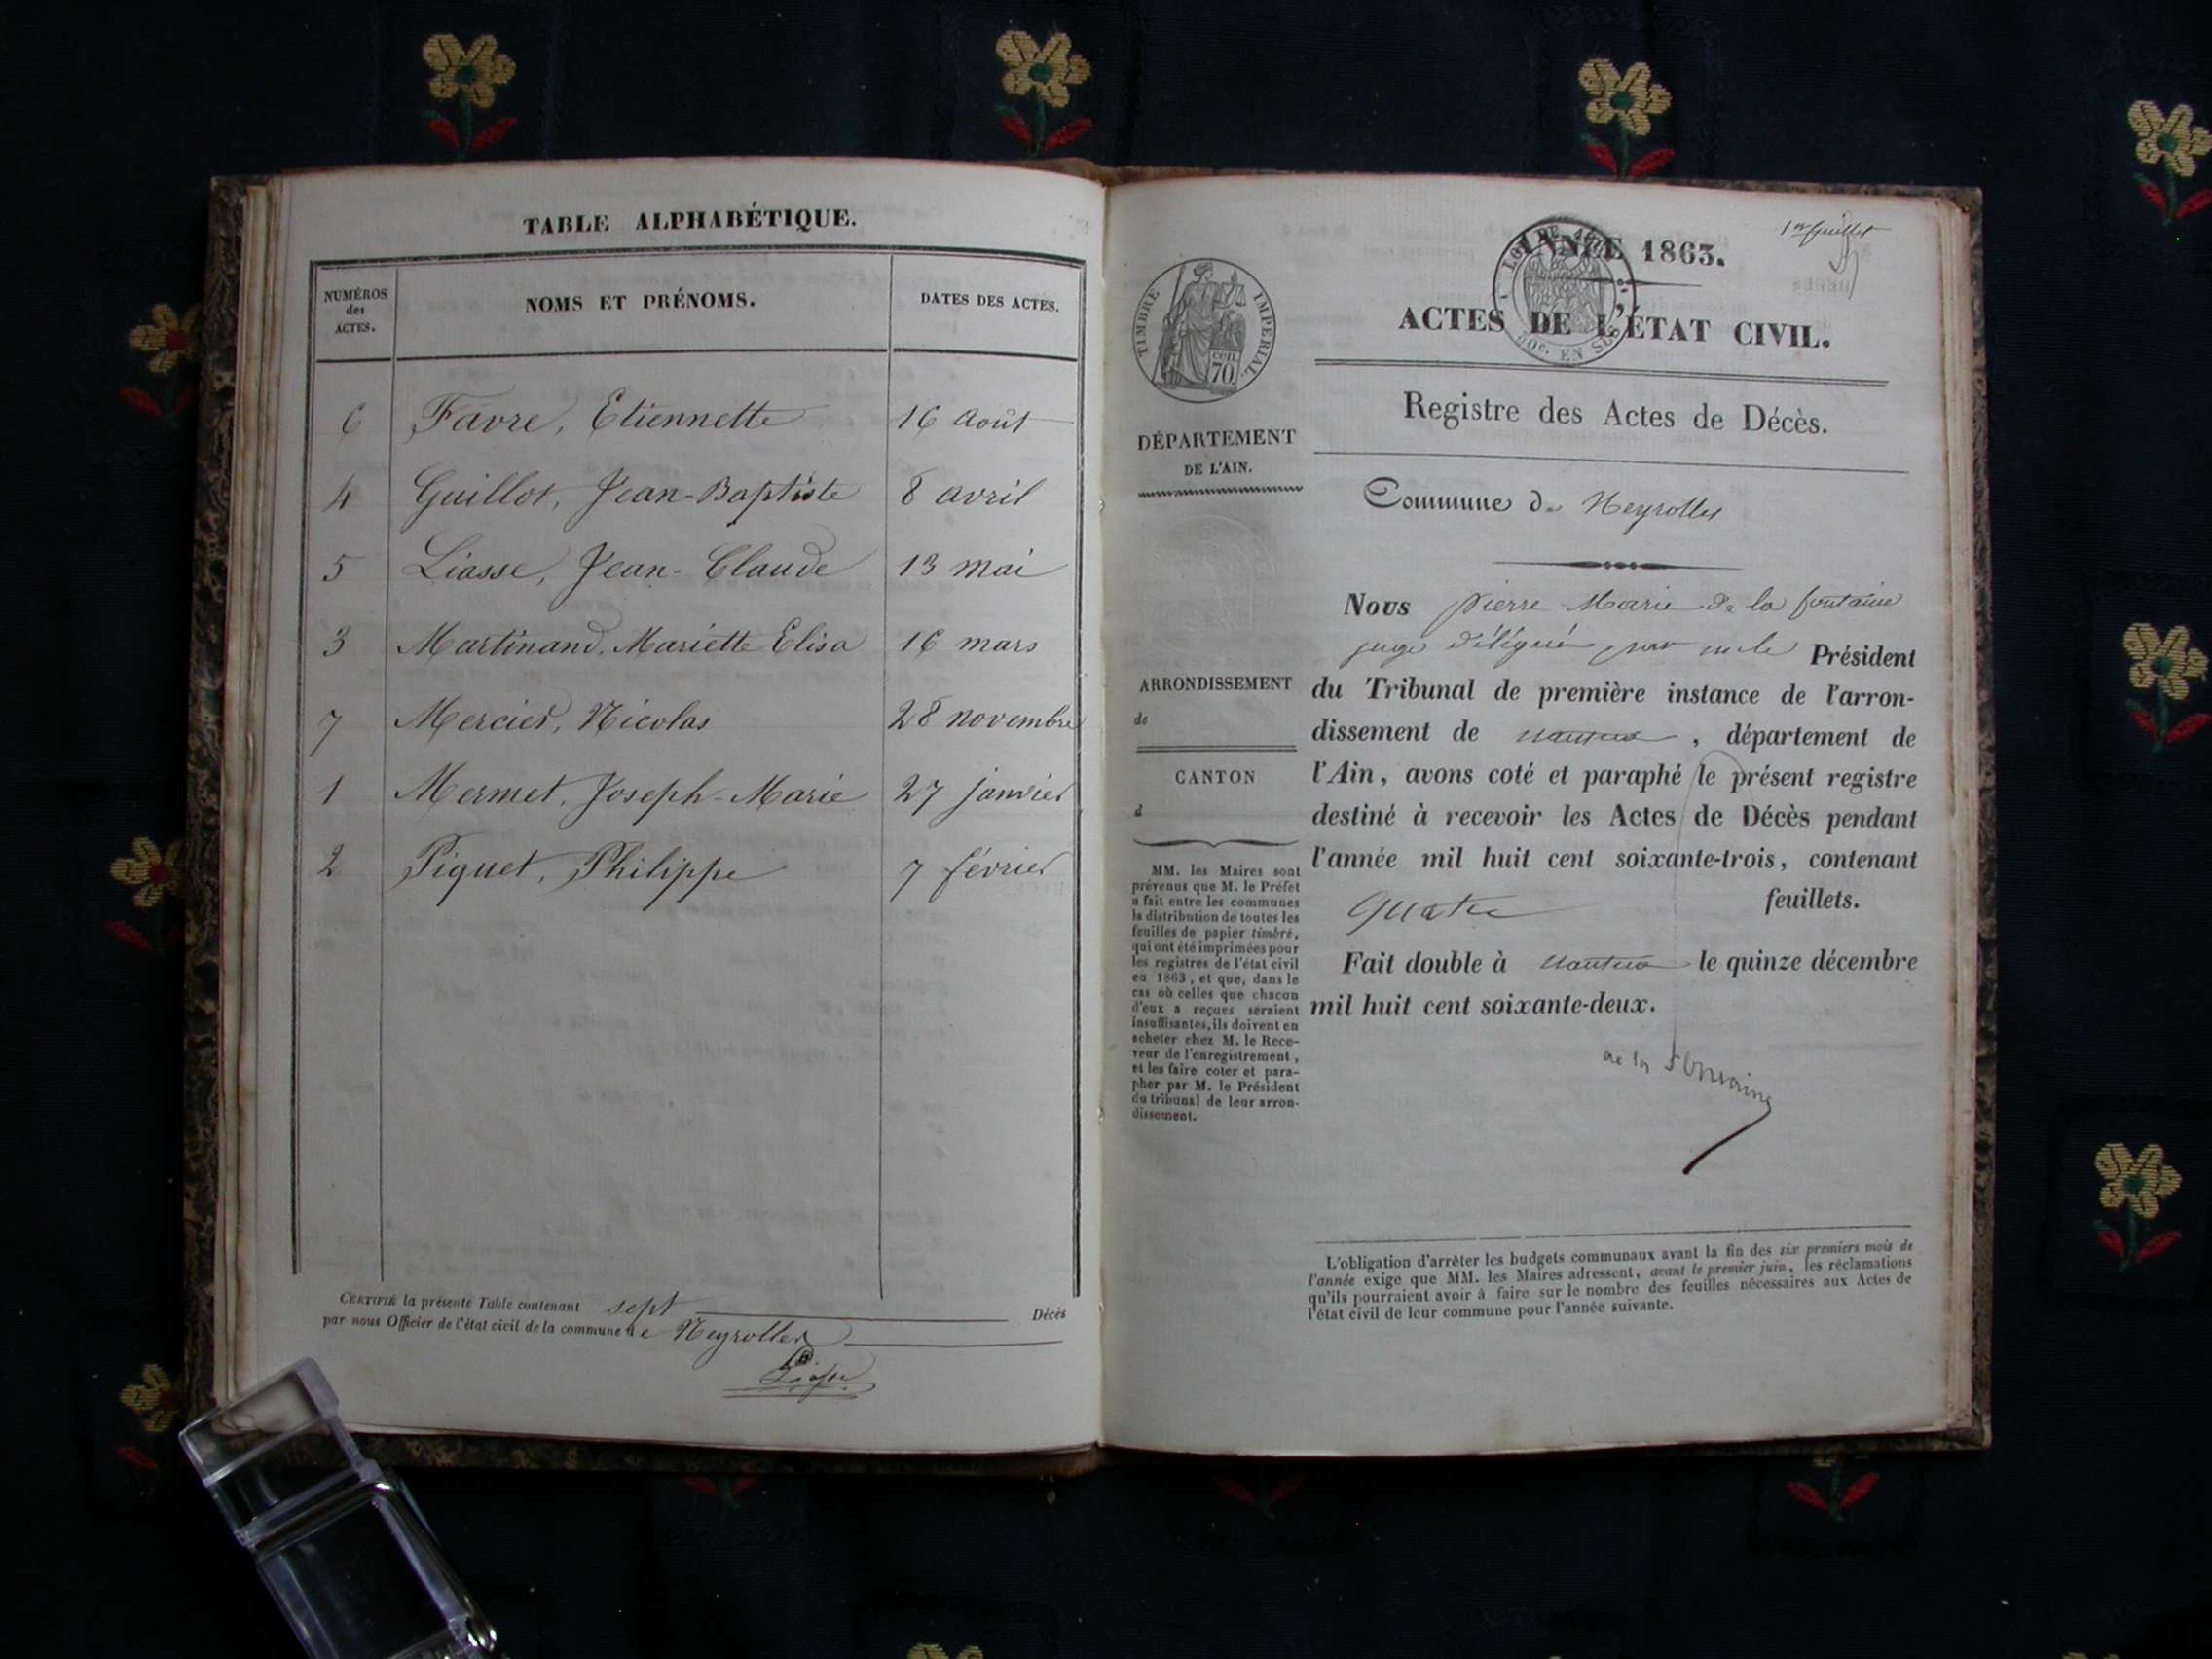 TABLE ALPHABÉTIQUE.
NUMÉROS des ACTES.
NOMS ET PRÉNOMS.
DATES DES ACTES.
6 Favre, Etiennette 16 août
4 Guillot, Jean-Baptiste 8 avril
5 Liasse, Jean-Claude 13 mai
3 Martinand, Mariette Elisa 16 mars
7 Mercier, Nicolas 28 novembre
1 Mermet, Joseph-Marie 27 janvier
2 Piquet, Philippe 7 février
CERTIFIÉ la présente Table contenant sept Décès
par nous Officier de l'état civil de la commune de Neyrolles
Liasse
1er feuillet
ANNÉE 1863.
ACTES DE L'ÉTAT CIVIL.
TIMBRE IMPÉRIAL
cen
70
Registre des Actes de Décès.
DÉPARTEMENT
DE L'AIN.
Commune de Neyrolles
Nous pierre Marie de la fontaine
juge délégué par Président
du Tribunal de première instance de l'arron-
dissement de nantua, département de
l'Ain, avons coté et paraphé le présent registre
destiné à recevoir les Actes de Décès pendant
l'année mil huit cent soixante-trois, contenant
quatre feuillets.
Fait double à nantua le quinze décembre
mil huit cent soixante-deux.
de la Fontaine
ARRONDISSEMENT
de
CANTON
d
MM. les Maires sont
prévenus que M. le Préfet
a fait entre les communes
la distribution de toutes les
feuilles de papier timbré,
qui ont été imprimées pour
les registres de l'état civil
en 1863, et que, dans le
cas où celles que chacun
d'eux a reçues seraient
insuffisantes, ils doivent en
acheter chez M. le Rece-
veur de l'enregistrement,
et les faire coter et para-
pher par M. le Président
du tribunal de leur arron-
dissement.
L'obligation d'arrêter les budgets communaux avant la fin des six premiers mois de
l'année exige que MM. les Maires adressent, avant le premier juin, les réclamations
qu'ils pourraient avoir à faire sur le nombre des feuilles nécessaires aux Actes de
l'état civil de leur commune pour l'année suivante.